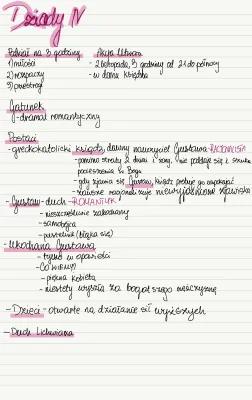 Dziady IV
Podział na 3 godziny
1) miłości
2) rozpaczy
3) przestrogi
Akcja Utworu
- 2 listopada, 3 godziny od 21 do północy
- w domu księdza
Gatunek
- dramat romantyczny
Postaci
- greckokatolicki ksiądz, dawny nauczyciel Gustawa - RACJONALISTA
- pomimo straty 2 dzieci i żony, nie poddaje się i szuka
pocieszenia w Bogu
- gdy zjawia się Gustaw, ksiądz próbuje go uspokajać
- zawsze racjonalizuje niewyjaśnione zjawiska
- Gustaw - duch - ROMANTYK
- nieszczęśliwie zakochany
- samobójca
- pustelnik (błąka się)
- Ukochana Gustawa
- tylko w opowieści
- Co wiemy?
- piękna kobieta
- niestety wyszła za bogatszego mężczyznę
- Dzieci - otwarte na działanie sił wyższych
- Duch Lichwiarza